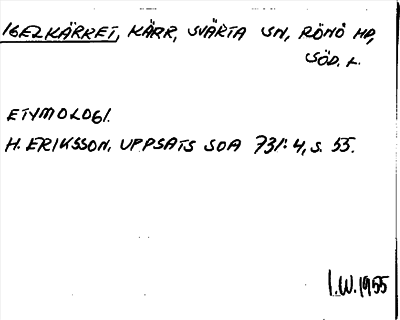 IGELKÄRRET, KÄRR, SVÄRTA SN, RÖNÖ HD,
SÖD. L.
ETYMOLOGI.
H. ERIKSSON, UPPSATS SOA 731:4, S. 55.
I.W. 1955